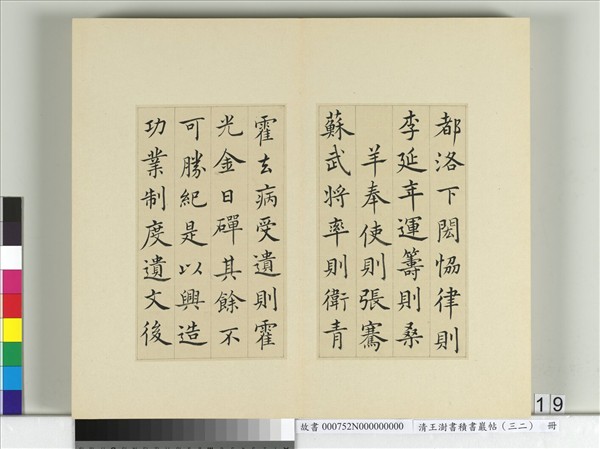 都洛下閎恊律則
李延年運籌則桑
羊奉使則張騫
蘇武将率則衛青
霍去病受遺則霍
光金日磾其餘不
可勝紀是以興造
功業制度遺文後
19
故書 000752N000000000 清王澍書積書巖帖（三二） 冊